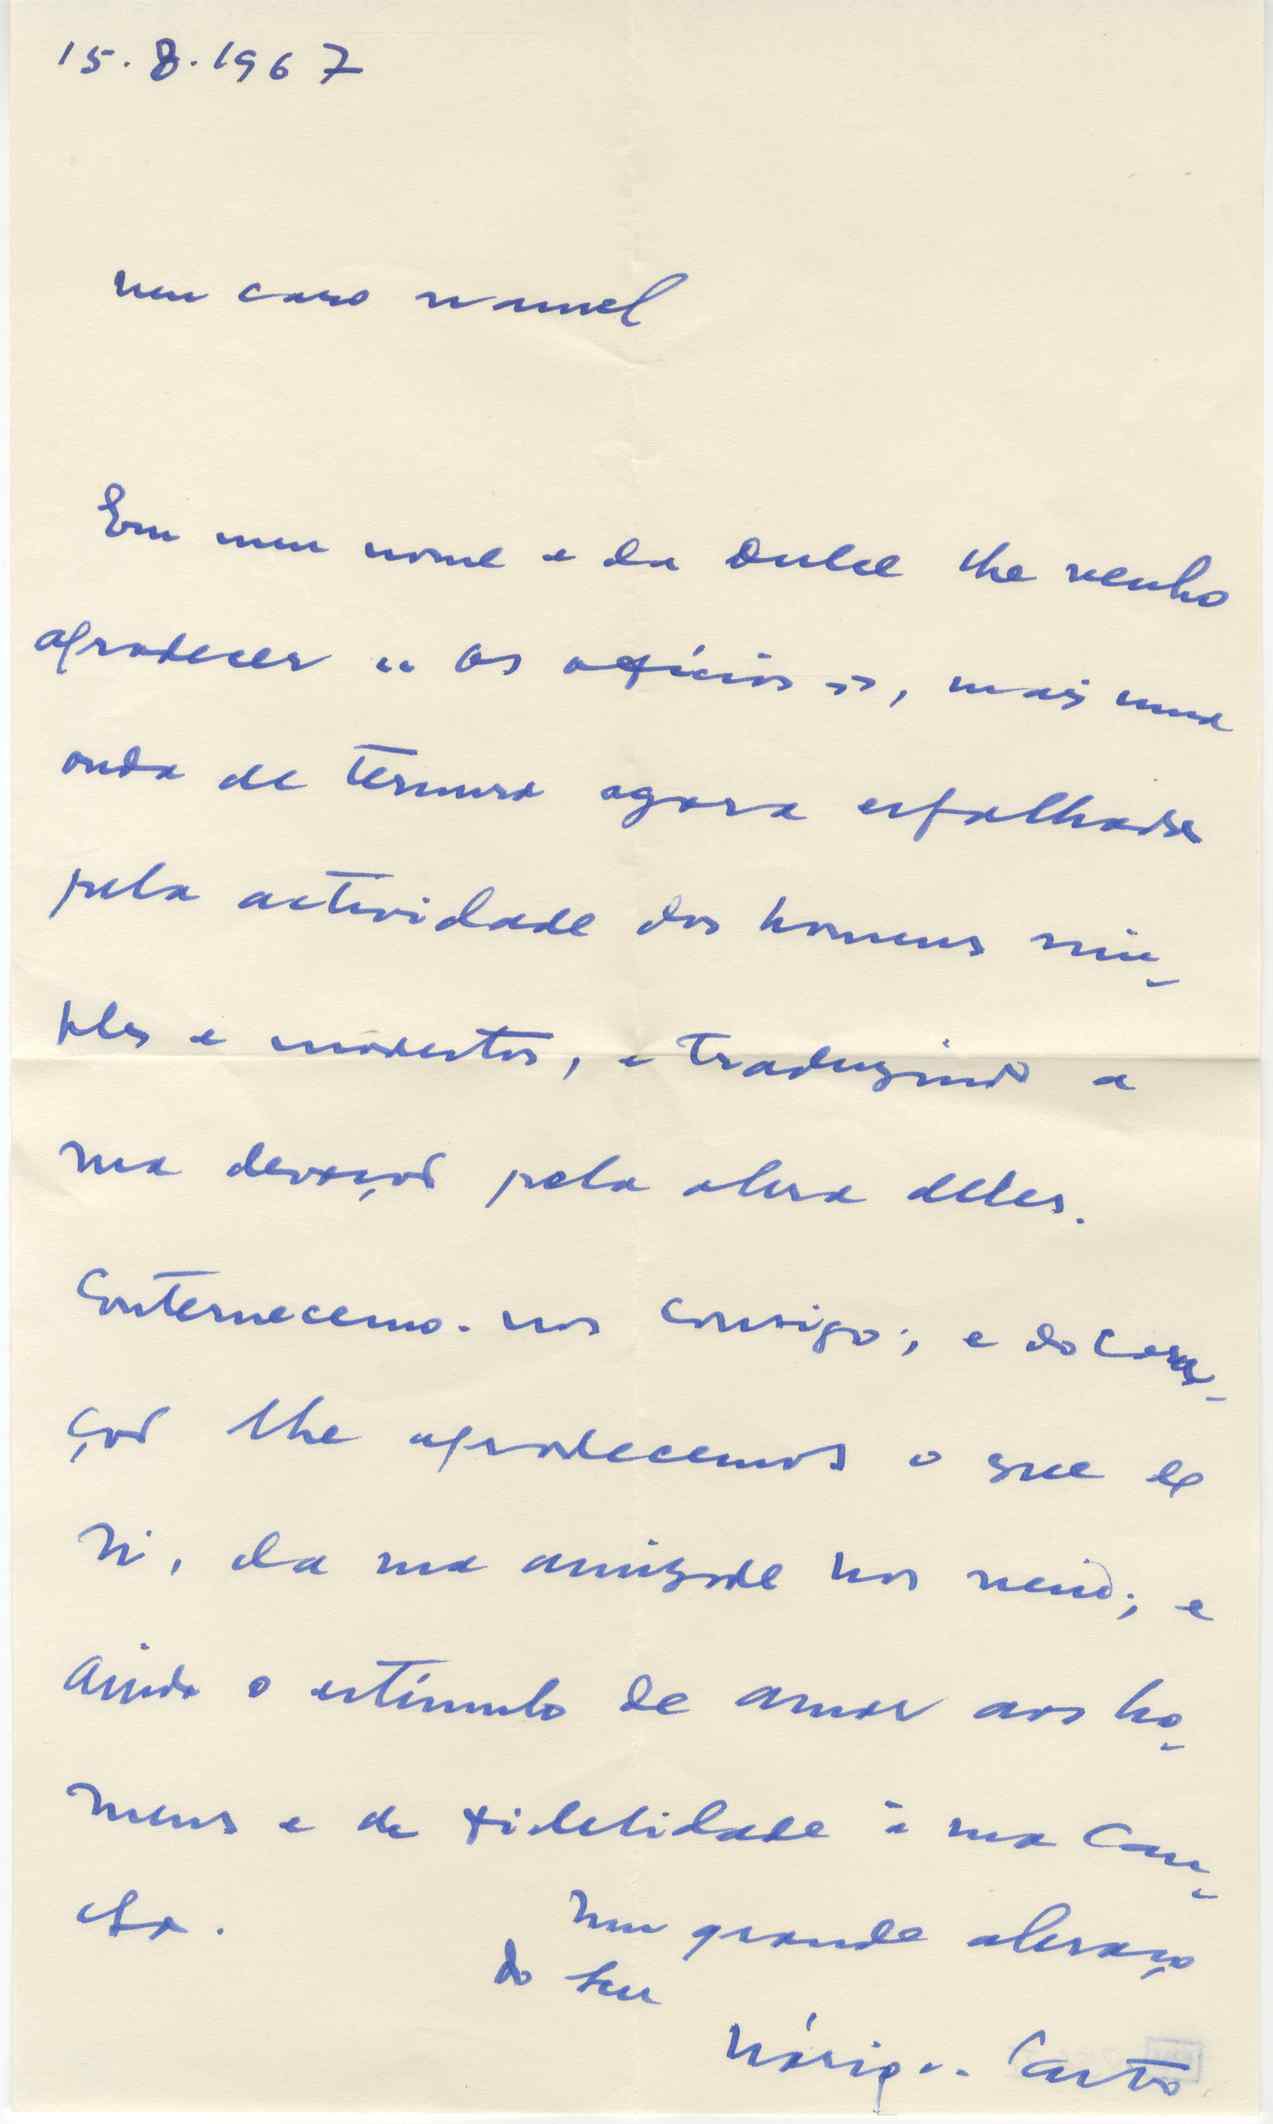 15.8.1967
Meu caro Manuel
Em meu nome e da Dulce lhe venho
agradecer "Os ofícios", mais uma
onda de ternura agora espalhada
pela actividade dos homens sim-
ples e modestos, e traduzindo a
sua devoção pela obra deles.
Enternecemo-nos consigo; e do cora-
ção lhe agradecemos o que
si, da sua amizade nos veio; e
ainda o estímulo de amor aos ho-
mens e de fidelidade à sua cau-
sa.
Um grande abraço
do seu
Castro